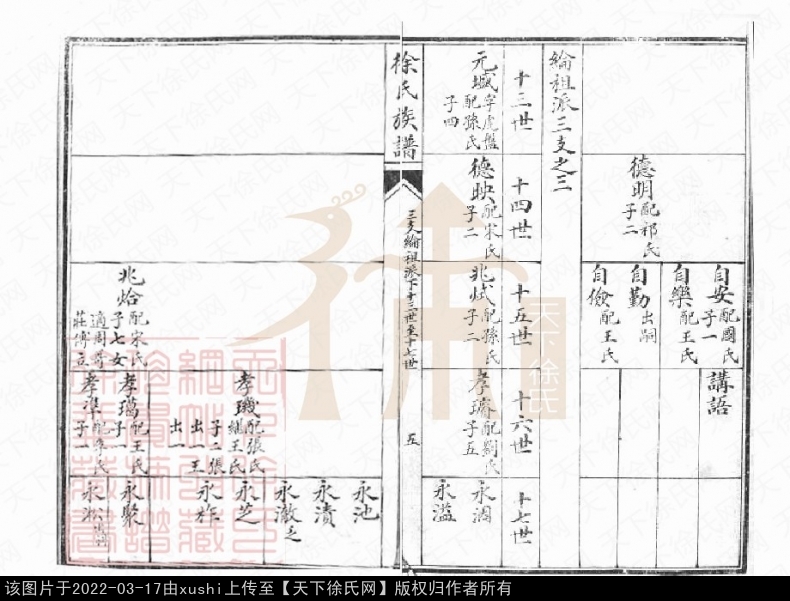 德明配祁氏
子二
自安配國氏
子一
自樂配王氏
自勤出嗣
自儉配王氏
講語
綸祖派三支之三
十三世
十四世
十五世
十六世
十七世
元城字虎盤
配孫氏
子四
德映配宋氏
子二
兆斌配孫氏
子二
孝璿配劉氏
子五
永潤
永溢
徐氏族譜
三支綸祖派下十三世至十七世
五
兆焓配宋氏
子七女
適周哥
莊傅立
孝璣配張氏
繼王氏
子二張
出一王
出一
孝瑪配王氏
子一
孝準配李氏
子一
永池
永漬
永澈
永芝
永祚
永聚
永淞
天下徐氏网
该图片于2022-03-17由xushi上传至【天下徐氏网】版权归作者所有